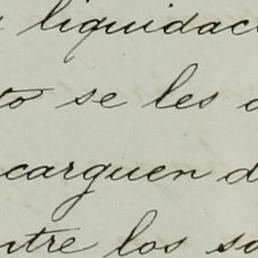 liquidac
to se les
carguen d
ntre los so